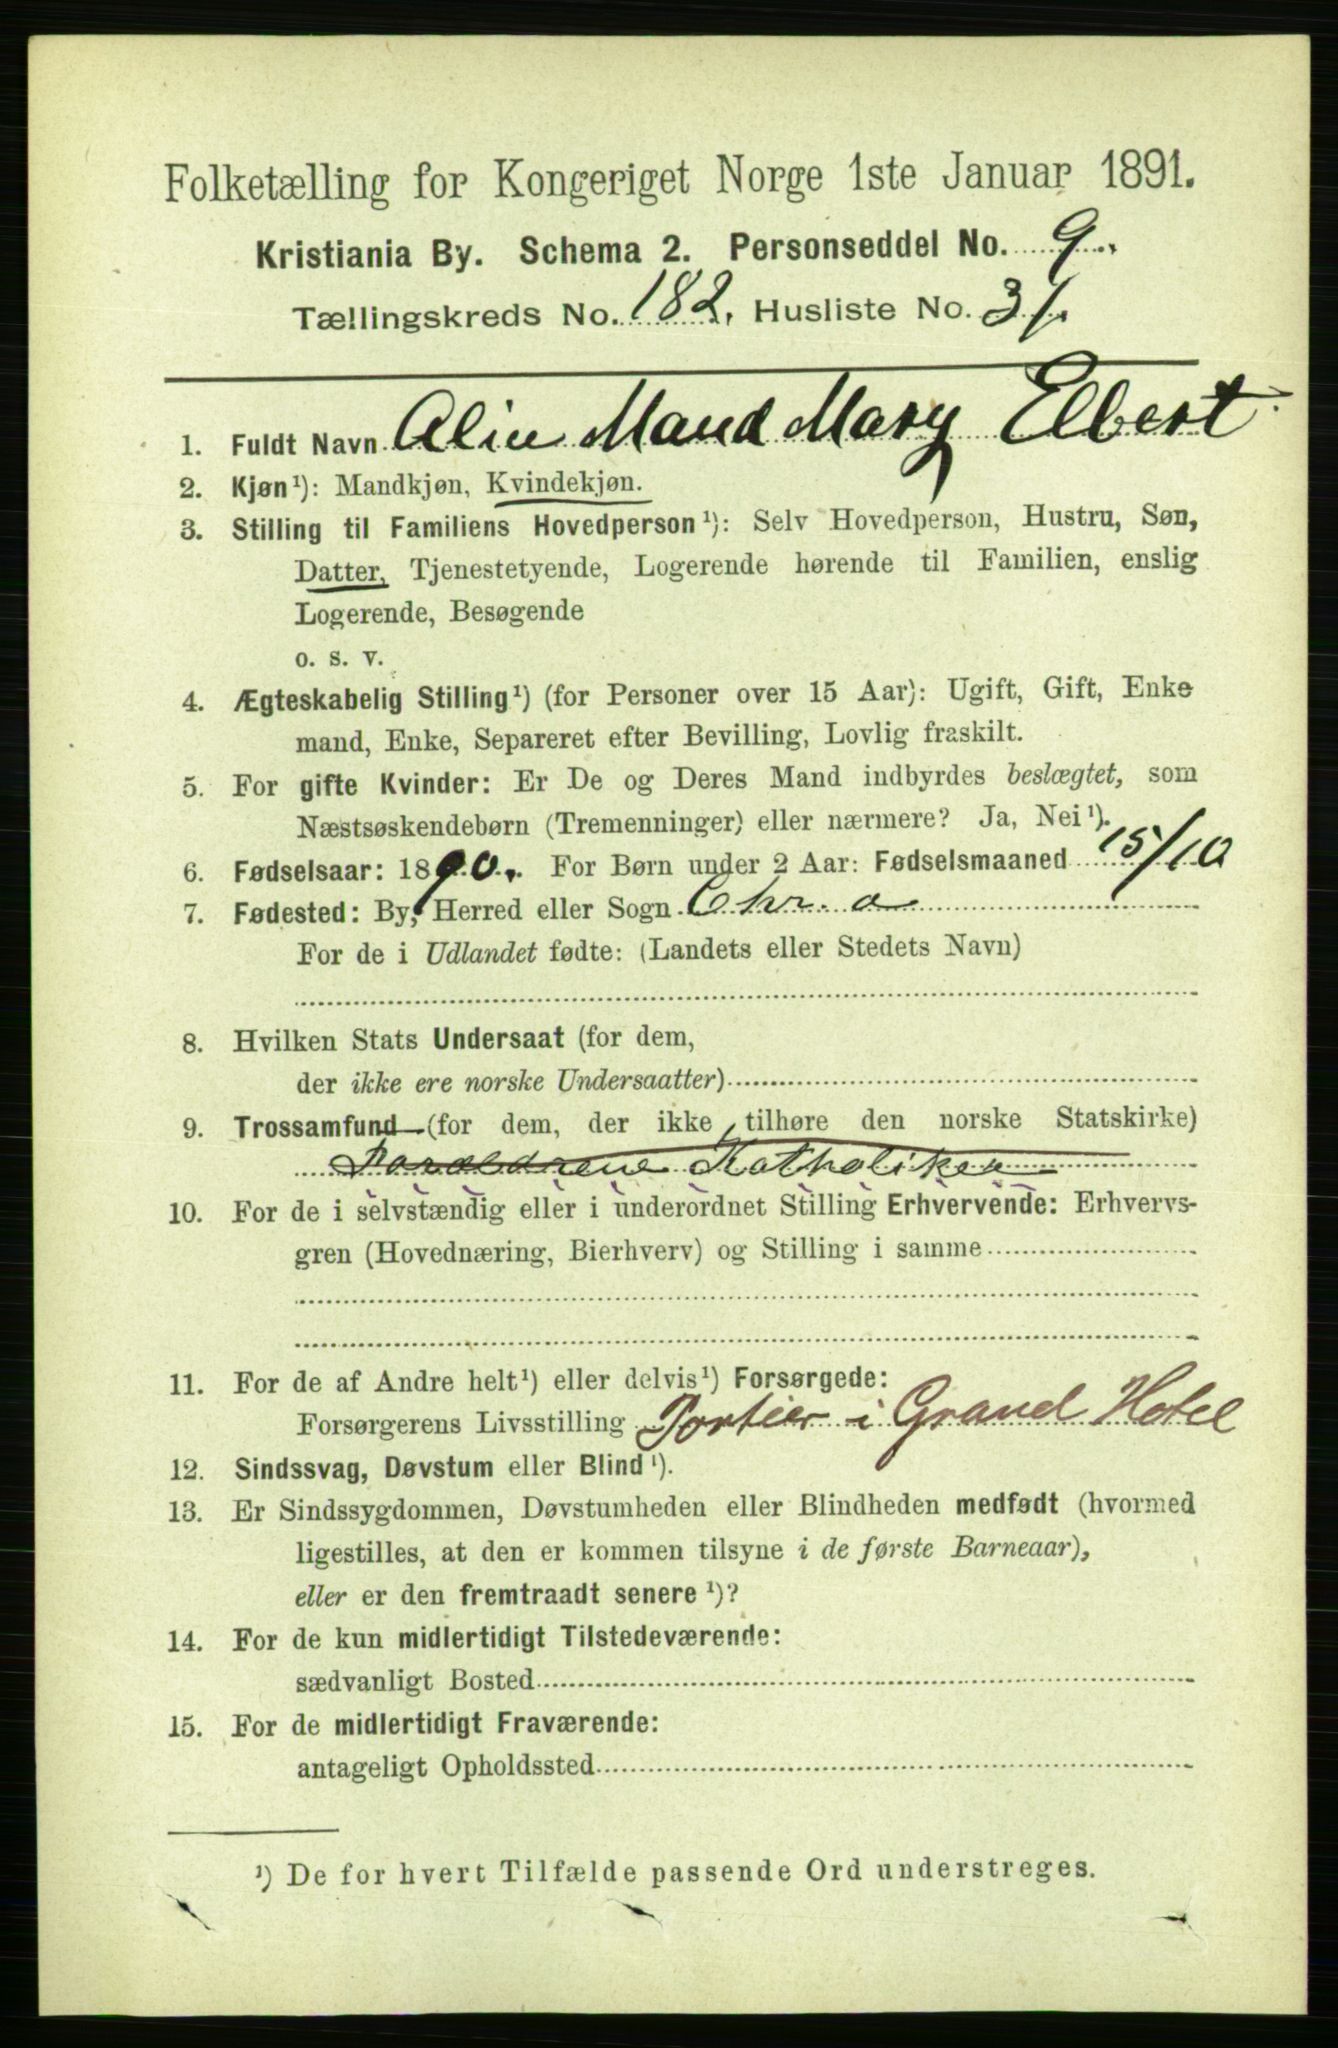 Folketælling for Kongeriget Norge 1ste Januar 1891.
Kristiania By. Schema 2. Personseddel No. 9.
Tællingskreds No. 182. Husliste No. 31.
1. Fuldt Navn Alin Maud Mary Elbert
2. Kjøn¹): Mandkjøn, Kvindekjøn.
3. Stilling til Familiens Hovedperson¹): Selv Hovedperson, Hustru, Søn,
Datter, Tjenestetyende, Logerende hørende til Familien, enslig
Logerende, Besøgende
o. s. v.
4. Ægteskabelig Stilling¹) (for Personer over 15 Aar): Ugift, Gift, Enke
mand, Enke, Separeret efter Bevilling, Lovlig fraskilt.
5. For gifte Kvinder: Er De og Deres Mand indbyrdes beslægtet, som
Næstsøskendebørn (Tremenninger) eller nærmere? Ja, Nei¹).
6. Fødselsaar: 1890. For Børn under 2 Aar: Fødselsmaaned 15/10
7. Fødested: By, Herred eller Sogn Chr. a
For de i Udlandet fødte: (Landets eller Stedets Navn)
8. Hvilken Stats Undersaat (for dem,
der ikke ere norske Undersaatter)
9. Trossamfund (for dem, der ikke tilhøre den norske Statskirke)
Forældrene Katholiker
10. For de i selvstændig eller i underordnet Stilling Erhvervende: Erhvervs-
gren (Hovednæring, Bierhverv) og Stilling i samme
11. For de af Andre helt¹) eller delvis¹) Forsørgede:
Forsørgerens Livsstilling Portier i Grand Hotel
12. Sindssvag, Døvstum eller Blind¹).
13. Er Sindssygdommen, Døvstumheden eller Blindheden medfødt (hvormed
ligestilles, at den er kommen tilsyne i de første Barneaar),
eller er den fremtraadt senere¹)?
14. For de kun midlertidigt Tilstedeværende:
sædvanligt Bosted
15. For de midlertidigt Fraværende:
antageligt Opholdssted
¹) De for hvert Tilfælde passende Ord understreges.